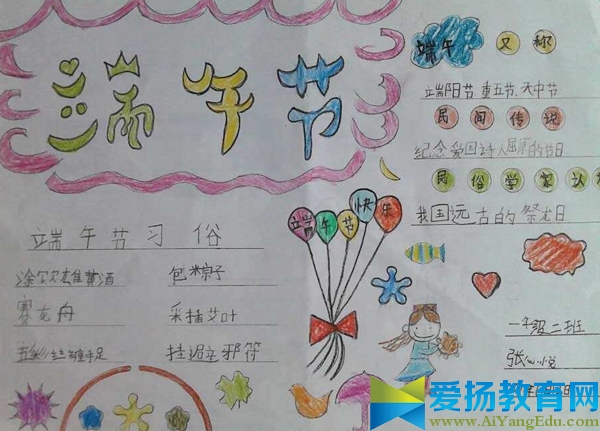 端午节
端午又称
端阳节 重五节、天中节
民间传说
纪念爱国诗人屈原的节日
民俗学家认
我国远古的祭龙日
端午节习俗
雄黄酒
包粽子
赛龙舟
采插艾叶
五彩丝缠手足
挂避邪符
端午节快乐
一年级二班
爱扬教育网
www.AiYangEdu.com